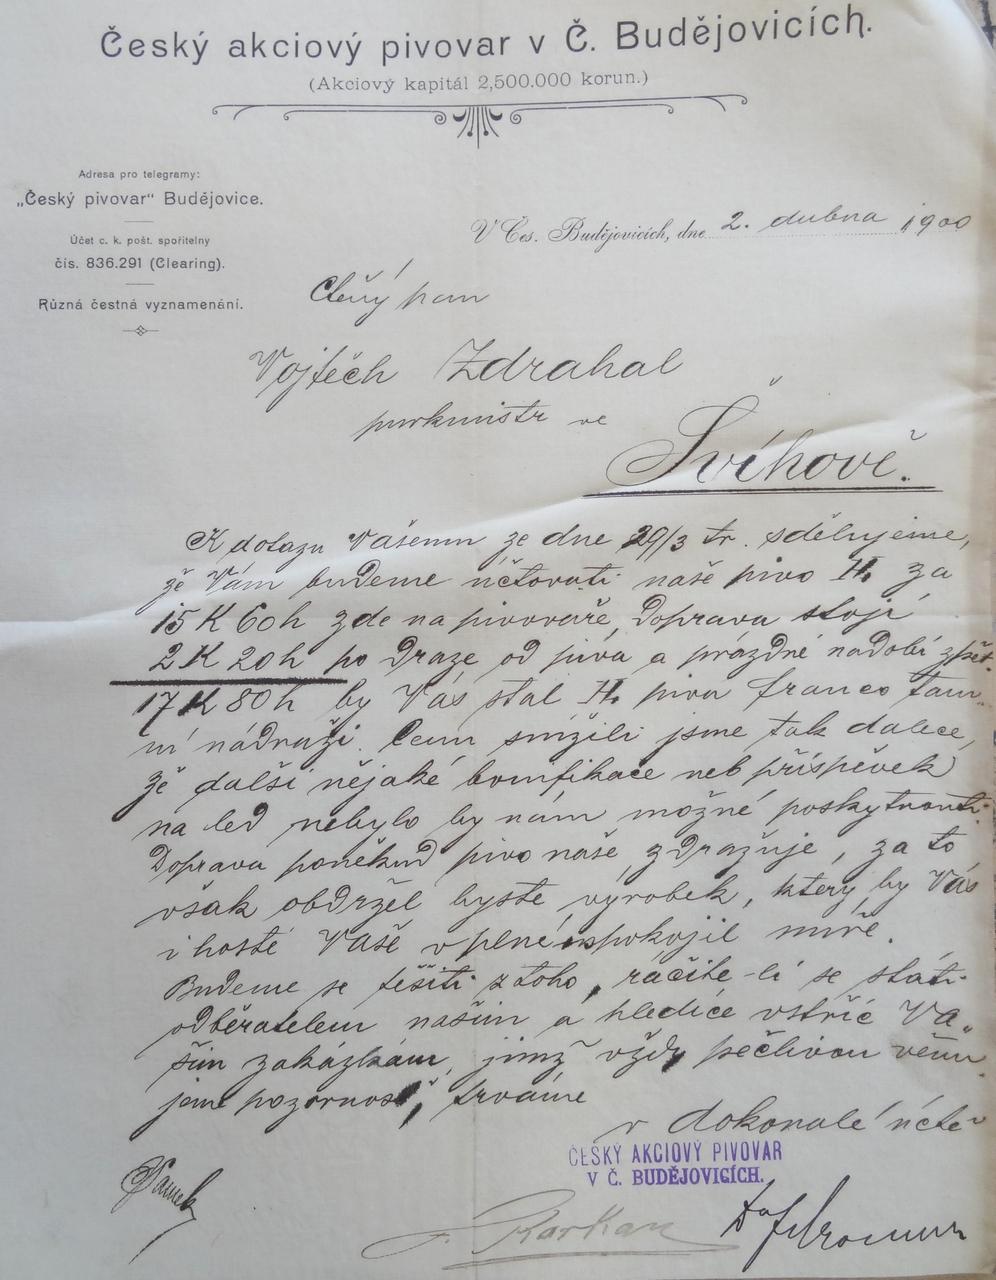 Český akciový pivovar v Č. Budějovicích.
(Akciový kapitál 2,500.000 korun.)
Adresa pro telegramy:
„Český pivovar“ Budějovice.
Účet c. k. pošt. spořitelny
čís. 836.291 (Clearing).
Různá čestná vyznamenání.
V Čes. Budějovicích, dne 2. dubna 1900
Ctěný pan
Vojtěch Zdrahal
purkmistr ve
Švihově.
K dotazu Vašemu ze dne 29/3 tr. sdělujeme,
že Vám budeme účtovati naše pivo H. za
15 K 60 h zde na pivováře, Doprava stojí
2 K 20 h po dráze od piva a prázdné nádobí zpět.
17 K 80 h by Vás stál H. piva franco tam-
ní nádraží. Cenu snížili jsme tak dalece,
že další nějaké bonifikace neb příspěvek
na led nebylo by nám možné poskytnouti.
Doprava poněkud pivo naše zdražuje, za to
však obdržel byste výrobek, který by Vás
i hosté Vaše v plné uspokojil míře.
Budeme se těšiti z toho, ráčíte-li se státi
odběratelem našim a hledíce vstříc Va-
šim zakázkám, jimž vždy pečlivou věnu-
jeme pozornost, trváme
v dokonalé úctě
ČESKÝ AKCIOVÝ PIVOVAR
V Č. BUDĚJOVICÍCH.